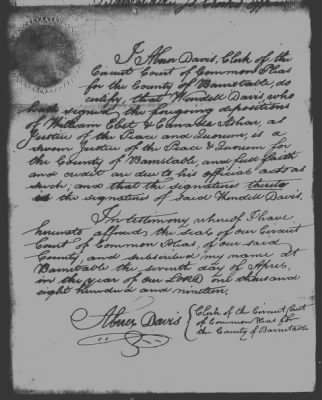 I Abner Davis, Clerk of the
Circuit Court of Common Pleas
for the County of Barnstable, do
certify, that Wendell Davis, who
has signed the foregoing depositions
of William &
Justice of the Peace and Quorum, is a
sworn Justice of the Peace & Quorum for
the County of Barnstable, and full faith
and credit are due to his official acts as
such, and that the signatures thereto
is the signatures of said Wendell Davis.
In testimony whereof I have
hereunto affixed the seal of our Circuit
Court of Common Pleas, of our said
County, and subscribed my name at
Barnstable the seventh day of April,
in the year of our Lord one thousand
eight hundred and nineteen.
Abner Davis
Clerk of the Circuit Court
of Common Pleas for
the County of Barnstable